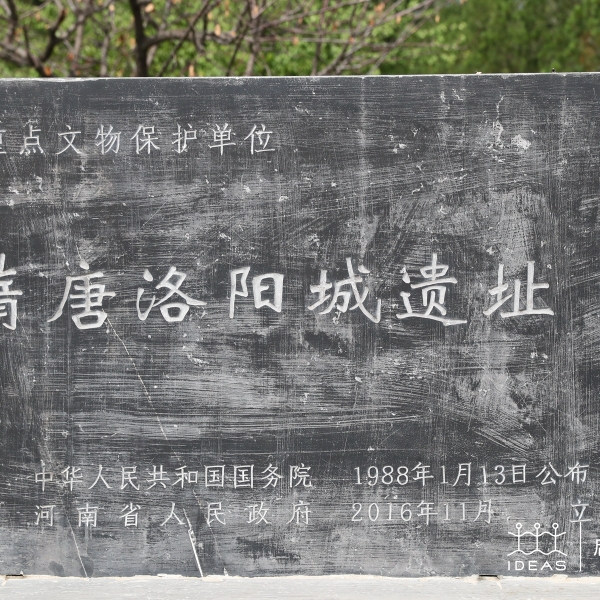 重点文物保护单位
隋唐洛阳城遗址
中华人民共和国国务院 1988年1月13日公布
河南省人民政府 2016年11月 立
IDEAS